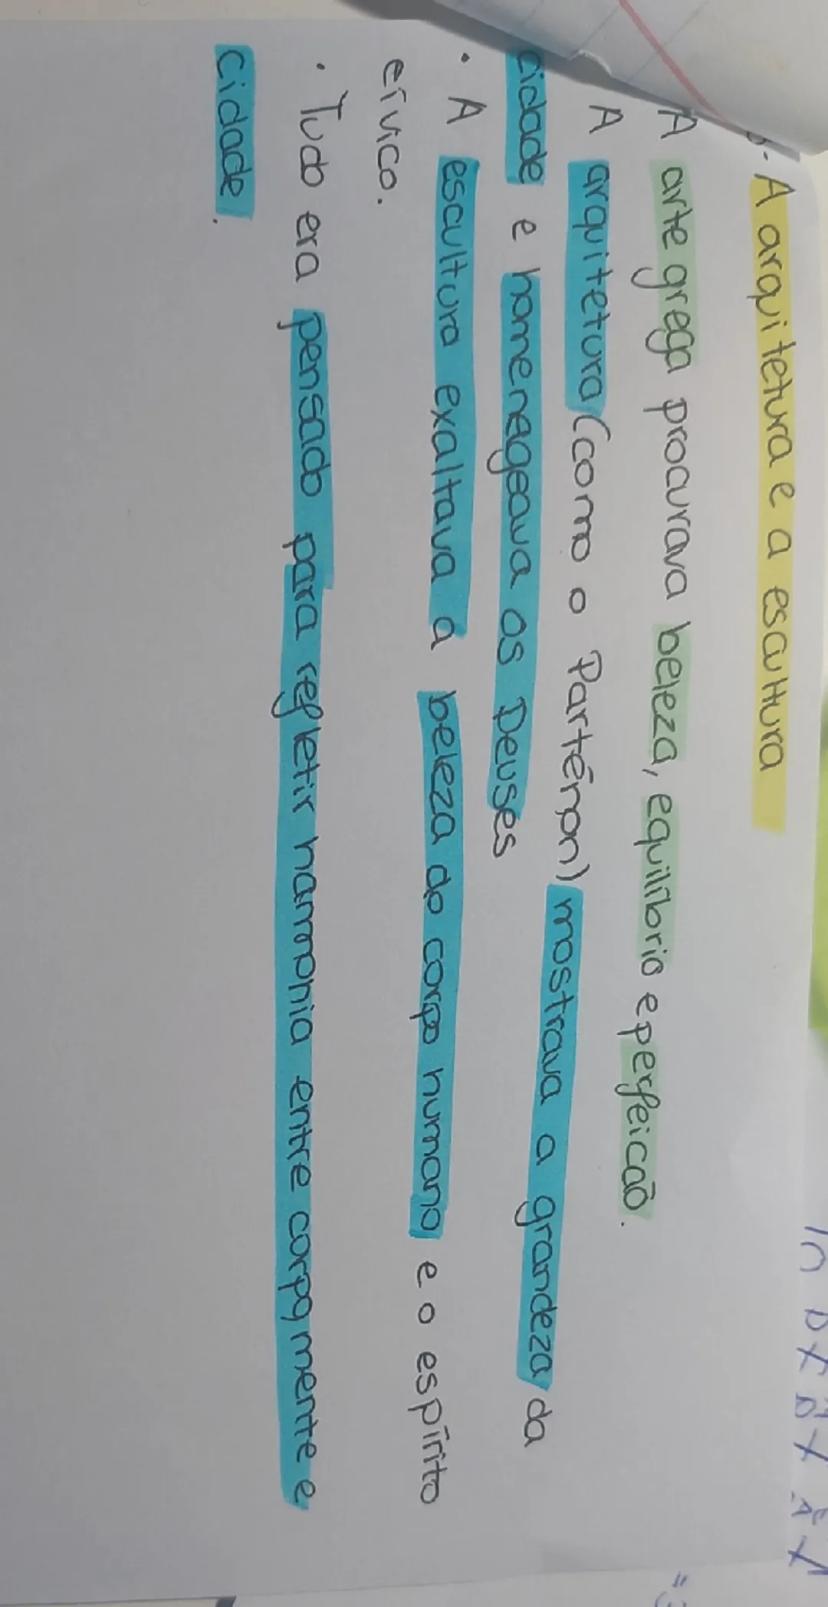 . A arquitetura e a escultura
A arte grega procurava beleza, equilíbrio e perfeicão.
A arquitetura (como o Parténon) mostrava a grandeza da
cidade e homenageava os Deuses
. A escultura exaltava a beleza do corpo humano e o espírito
cívico.
. Tudo era pensado para refletir harmonia entre corpo, mente e
cidade.